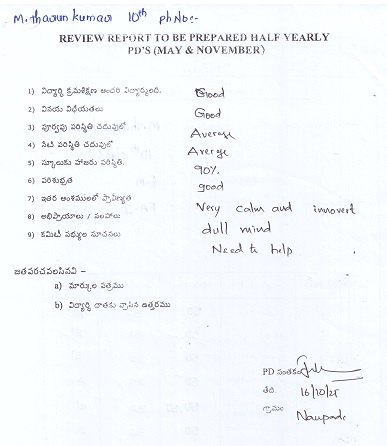 M. Tharun kumar 10th ph No:-
REVIEW REPORT TO BE PREPARED HALF YEARLY
PD'S (MAY & NOVEMBER)
1) విద్యార్థి క్రమశిక్షణ అందరి విద్యార్థులది. Good
2) వినయ విధేయతలు Good
3) పూర్వపు పరిస్థితి చదువులో Average
4) నేటి పరిస్థితి చదువులో Averge
5) స్కూలుకు హాజరు పరిస్థితి. 90%
6) పరిశుభ్రత good
7) ఇతర అంశములలో ప్రావీణ్యత Very calm and innovert
8) అభిప్రాయాలు / సలహాలు dull mind
9) కమిటీ సభ్యుల సూచనలు Need to help
జతపరచవలసినవి –
a) మార్కుల పత్రము
b) విద్యార్థి దాతకు వ్రాసిన ఉత్తరము
PD సంతకం
తేది. 16/10/25
గ్రామం Naupada